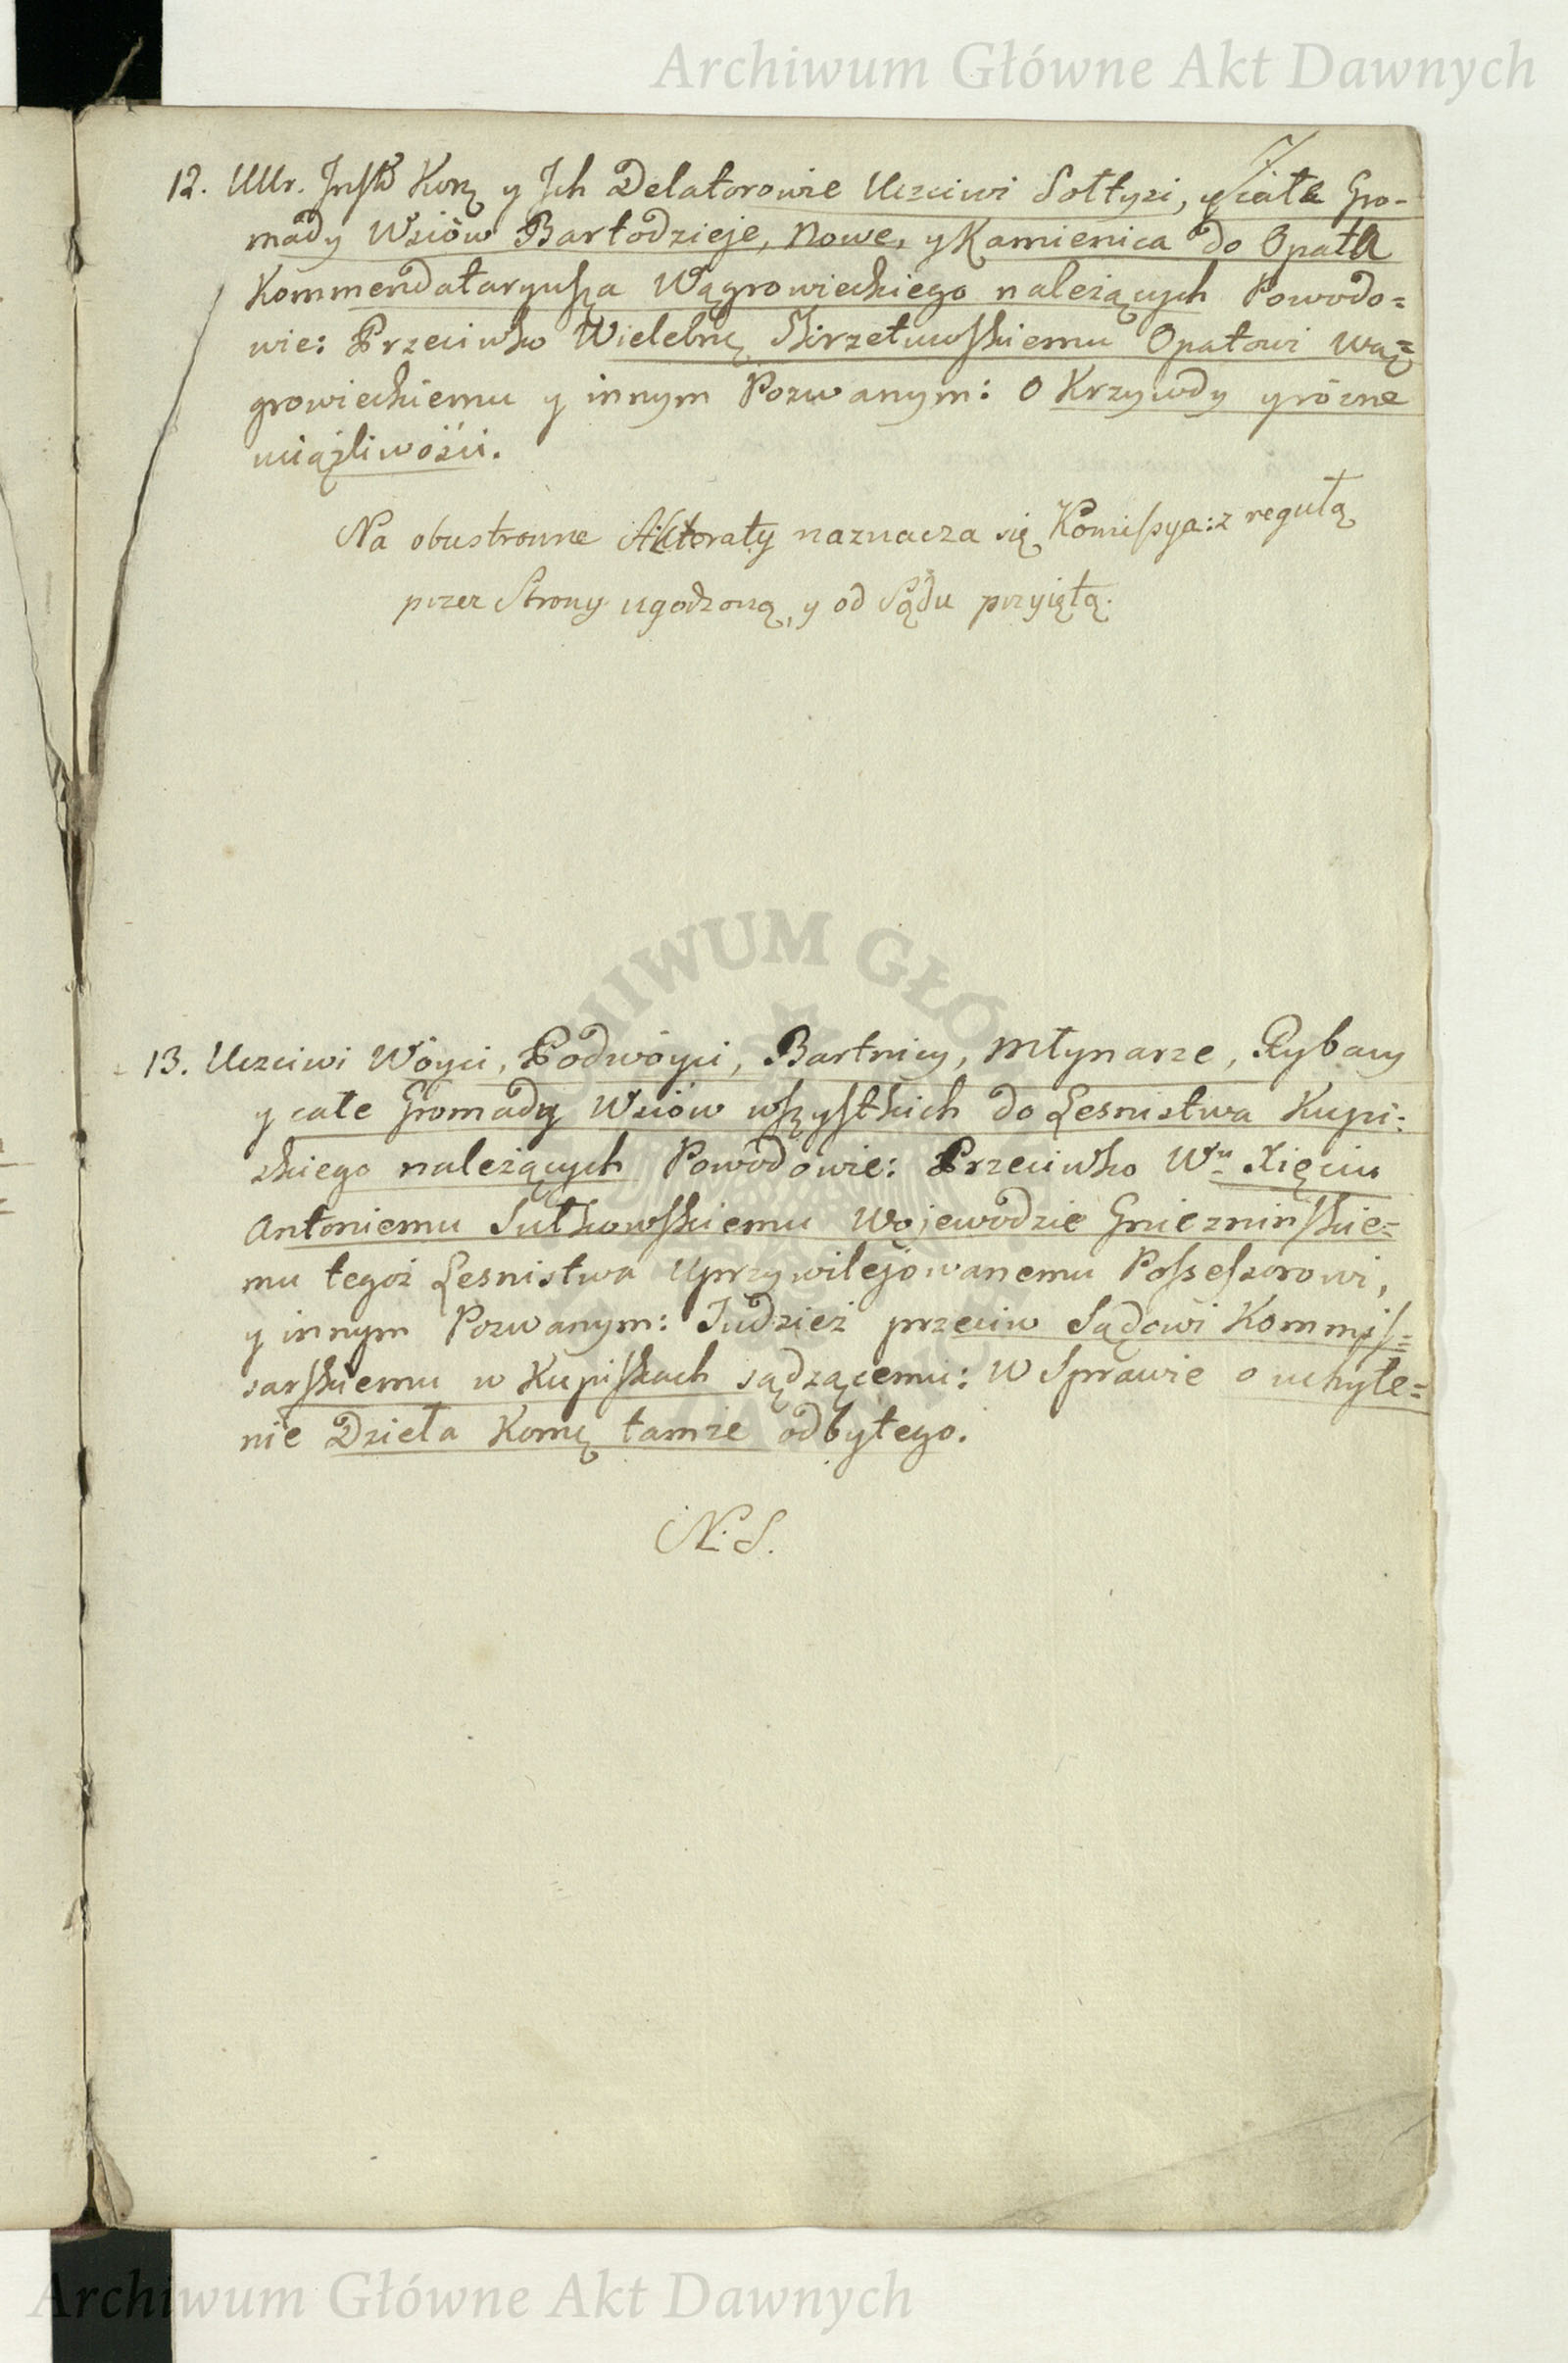 Archiwum Główne Akt Dawnych
7
12. UUr. Inst͠w Korą y Ich Delatorowie Uczciwi Sołtysi, y całe Gro-
mady Wsiów Bartodzieje, Nowe, y Kamienica do Opata
Kommendataryusza Wągrowieckiego należących Powodo=
wie: Przeciwko Wielebnę Skirzetuwskiemu Opatowi Wą=
growieckiemu y innym Pozwanym: O Krzywdy y rózne
uciążliwości.
Na obustronne Aktoraty naznacza się Komissya: z regułą
przez Strony ugodzoną, y od Sądu przyiętą.
13. Uczciwi Wóyci, Podwóyci, Bartnicy, Młynarze, Rybacy
y całe Gromady Wsiów wszystkich do Lesnistwa Kupi:
skiego należących Powodowie: Przeciwko Wu Xięciu
Antoniemu Sułkowskiemu Wojewodzie Gnieznińskie=
mu tegoż Lesnistwa Uprzywilejowanemu Possessorowi,
y innym Pozwanym: Tudzież przeciw Sądowi Kommis=
sarskiemu w Kupiskach sądzącemu: W Sprawie o uchyle=
nie Dzieła Komę tamże odbytego.
N. S.
ARCHIWUM GŁÓWNE
Archiwum Główne Akt Dawnych